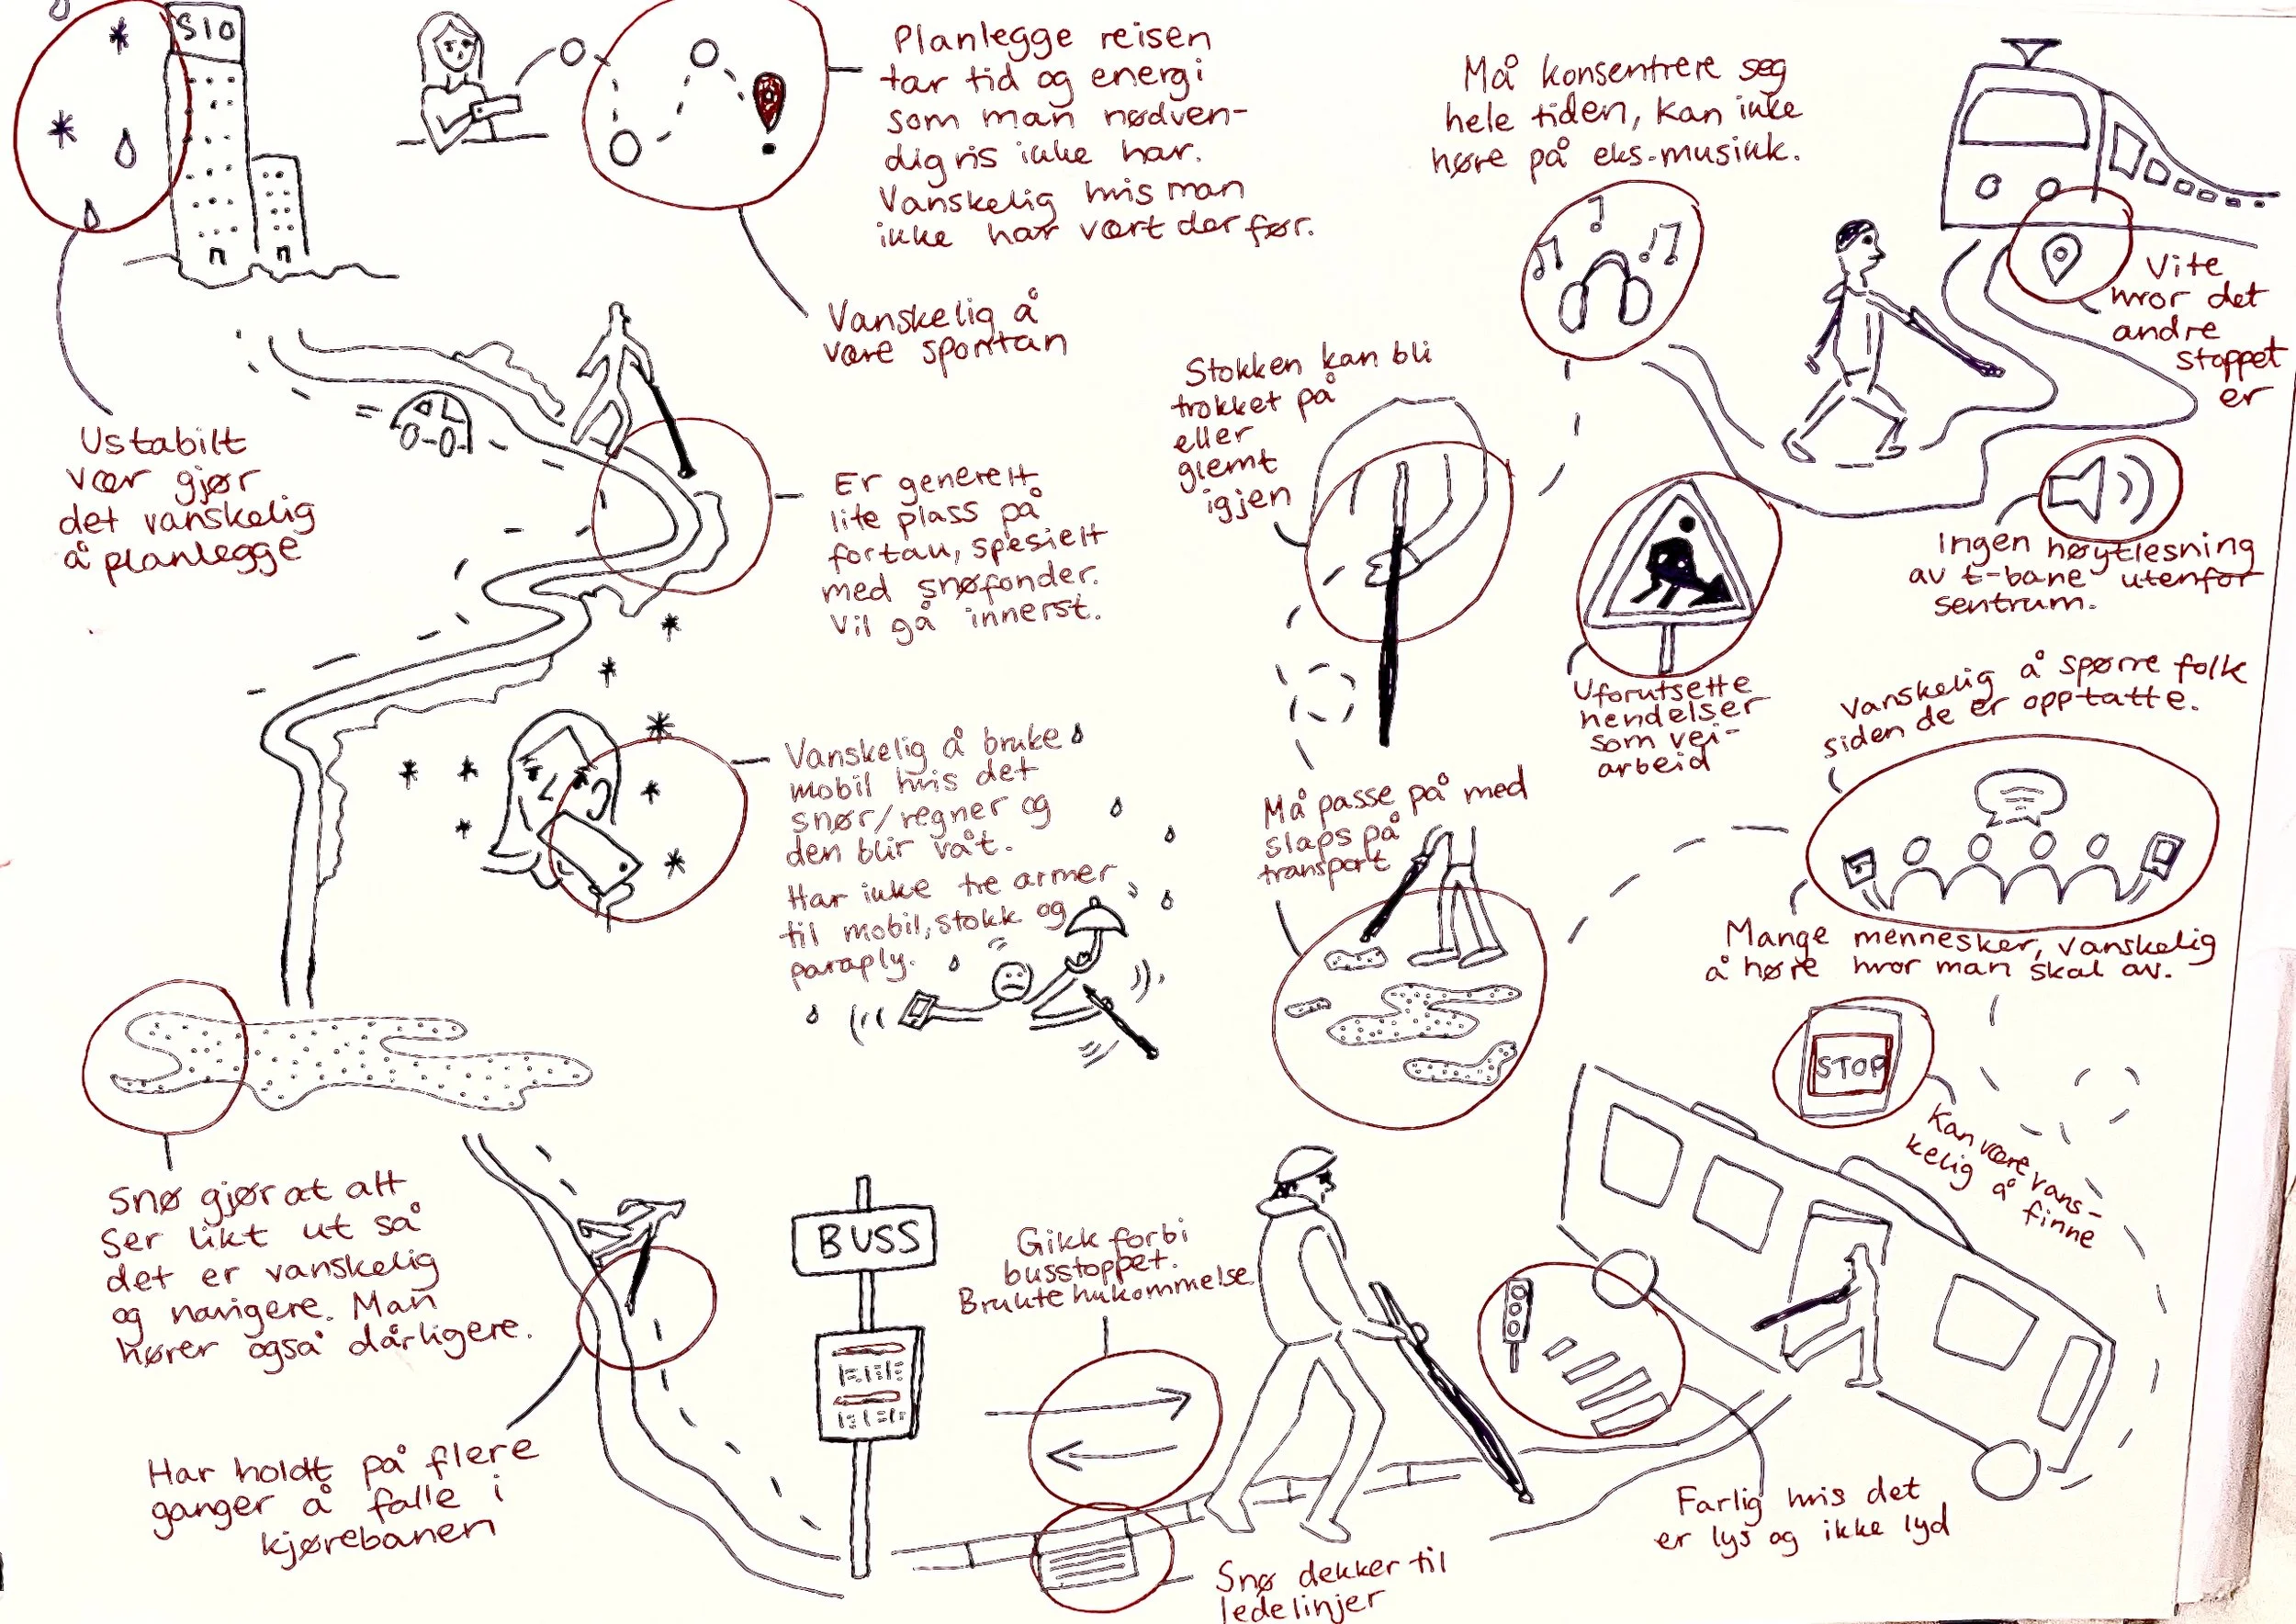 SIO
Planlegge reisen
tar tid og energi
som man nødven-
digvis ikke har.
Vanskelig hvis man
ikke har vært der før.
Vanskelig å
være spontan
Ustabilt
vær gjør
det vanskelig
å planlegge
Er generelt
lite plass på
fortau, spesielt
med snøfonder.
Vil gå innerst.
Vanskelig å bruke
mobil hvis det
snør/regner og
den blir våt.
Har ikke tre armer
til mobil, stokk og
paraply.
Snø gjør at alt
ser likt ut så
det er vanskelig
og navigere. Man
hører også dårligere.
Har holdt på flere
ganger å falle i
kjørebanen
BUSS
Gikk forbi
busstoppet.
Brukte hukommelse
Snø dekker til
ledelinjer
Farlig hvis det
er lys og ikke lyd
STOP
Kan være vans-
kelig å
finne
Mange mennesker, vanskelig
å høre hvor man skal av.
Vanskelig å spørre folk
siden de er opptatte.
Må passe på med
slaps på
transport
Stokken kan bli
tråkket på
eller
glemt
igjen
Uforutsette
hendelser
som vei-
arbeid
Må konsentrere seg
hele tiden, kan ikke
høre på eks. musikk.
Vite
hvor det
andre
stoppet
er
Ingen høytlesning
av t-bane utenfor
sentrum.